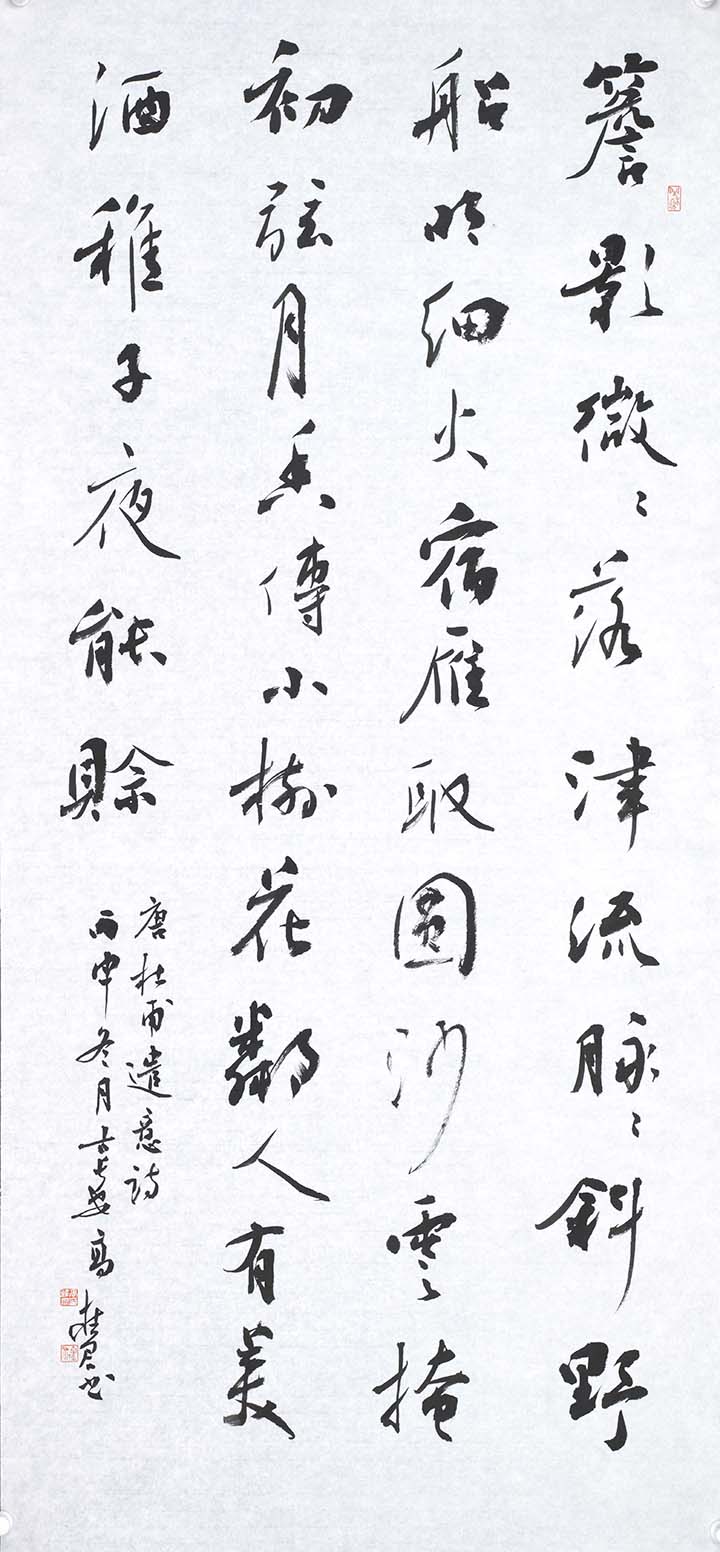 簷影微〻落津流脉〻斜野
船明細火宿雁取圓沙雲掩
初弦月香傳小樹花鄰人有美
酒稚子夜能賒
唐杜甫遣意詩
丙申冬月古長安高書